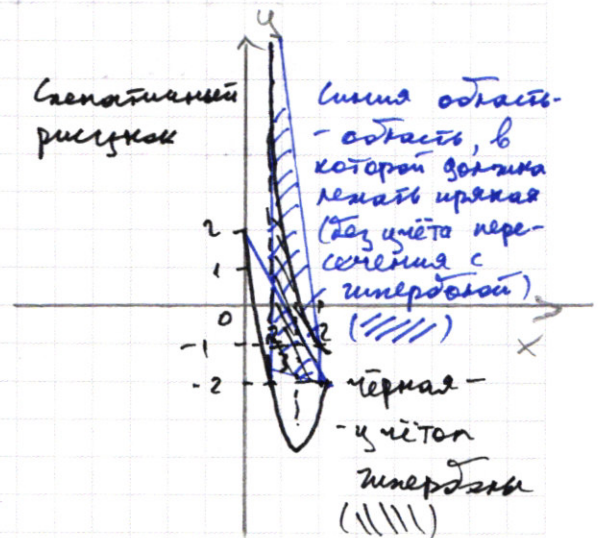 y
Схематичный
рисунок
Синяя область-
- область, в
которой должна
лежать прямая
(без учёта пере-
сечения с
гиперболой)
(//////)
2
1
0
2
x
-1
-2
чёрная -
- учётом
гиперболы
(\\\\\)